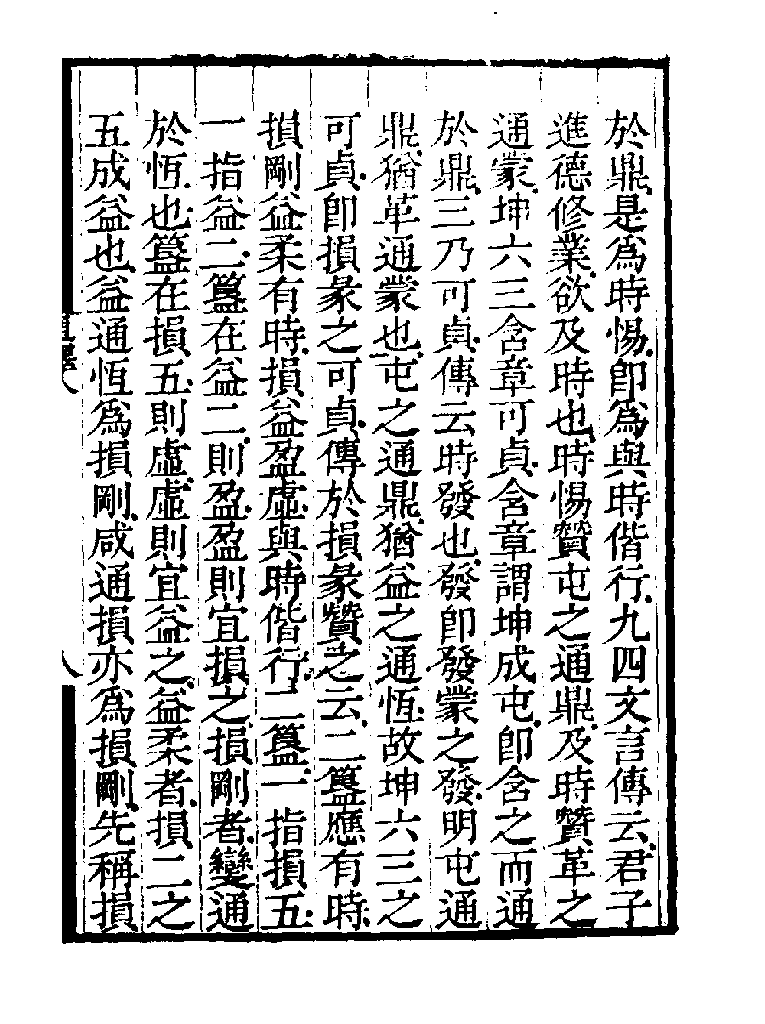 於鼎是爲時惕卽爲與時偕行九四文言傳云君子
進德修業欲及時也時惕贊屯之通鼎及時贊革之
通蒙坤六三含章可貞含章謂坤成屯卽含之而通
於鼎三乃可貞傳云時發也發卽發蒙之發明屯通
鼎猶革通蒙也屯之通鼎猶益之通恆故坤六三之
可貞卽損彖之可貞傳於損彖贊之云二簋應有時
損剛益柔有時損益盈虛與時偕行二簋一指損五
一指益二簋在益二則盈盈則宜損之損剛者變通
於恆也簋在損五則虛虛則宜益之益柔者損二之
五成益也益通恆爲損剛咸通損亦爲損剛先稱損
通釋八
八